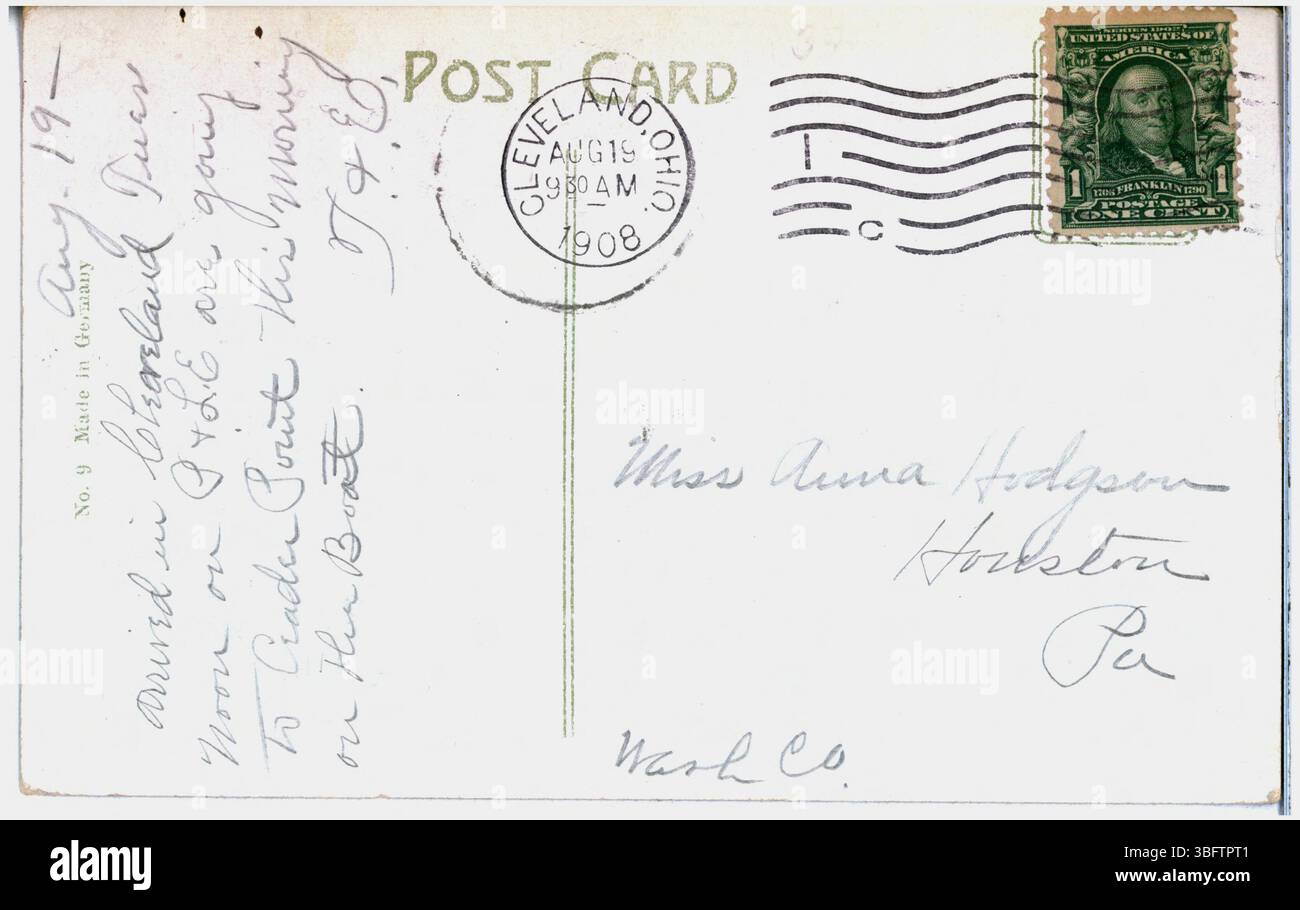 POST CARD
CLEVELAND, OHIO.
AUG 19
9 30 AM
1908
1
C
SERIES 1902
UNITED STATES OF
AMERICA
1 1706 FRANKLIN 1790 1
POSTAGE
ONE CENT
No. 9 Made in Germany
Aug. 19 —
Arrived in Cleveland Tues
Noon on P & L.E are going
To Ceader Point this Morning
on the Boat.
&
Miss Anna Hodgson
Houston
Pa
Wash Co.
alamy
Image ID: 3BFTPT1
www.alamy.com